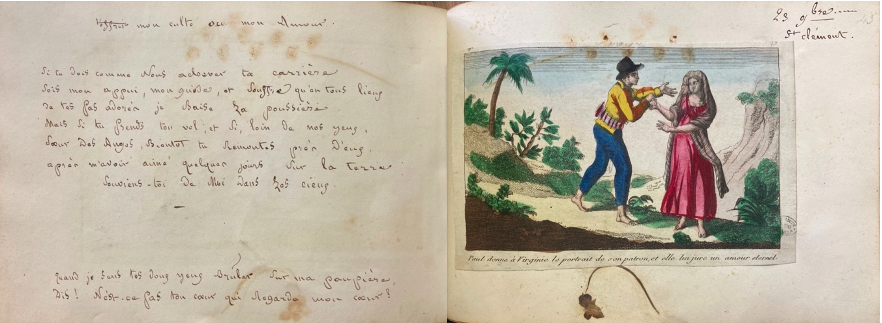 mon culte ou mon Amour.
Si tu dois comme Nous achever ta carrière
Sois mon appui, mon guide, et Souffre qu'en tous lieux
De tes pas adorés je Baise la poussière
Mais Si tu prends ton vol, et Si, loin de nos yeux,
Sœur Des Anges, Bientôt tu Remontes près D'eux,
après m'avoir aimé quelques jours Sur la terre
Souviens-toi de Moi Dans les cieux.
quand je sens tes doux yeux Brûler Sur ma paupière,
Dis! N'est-ce pas ton cœur qui Regarde mon cœur?
23 9bre
St clément.
Paul donne à Virginie le portrait de son patron, et elle lui jure un amour eternel.